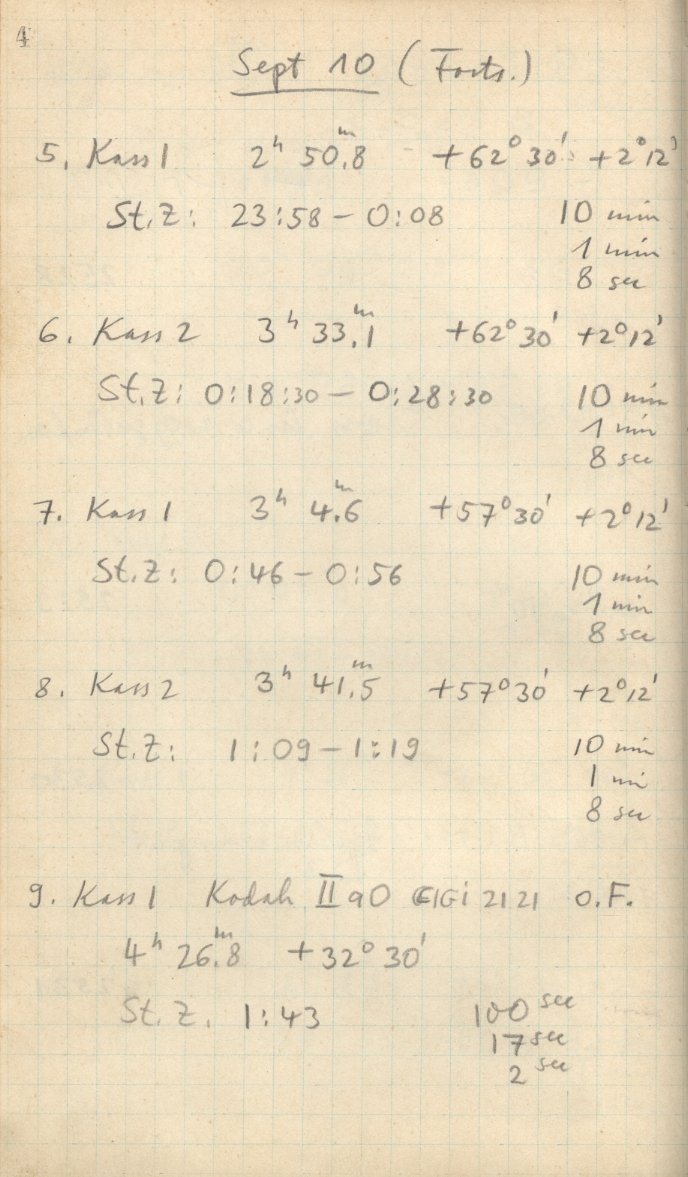 4
Sept 10 (Forts.)
5. Kass 1 2ʰ 50ᵐ.8 +62° 30' +2° 12'
St.Z: 23:58 – 0:08 10 min
1 min
8 sec
6. Kass 2 3ʰ 33ᵐ.1 +62° 30' +2° 12'
St.Z: 0:18:30 – 0:28:30 10 min
1 min
8 sec
7. Kass 1 3ʰ 4ᵐ.6 +57° 30' +2° 12'
St.Z: 0:46 – 0:56 10 min
1 min
8 sec
8. Kass 2 3ʰ 41ᵐ.5 +57° 30' +2° 12'
St.Z: 1:09 – 1:19 10 min
1 min
8 sec
9. Kass 1 Kodak II aO 2121 O.F.
4ʰ 26ᵐ.8 +32° 30'
St.Z. 1:43 100 sec
17 sec
2 sec